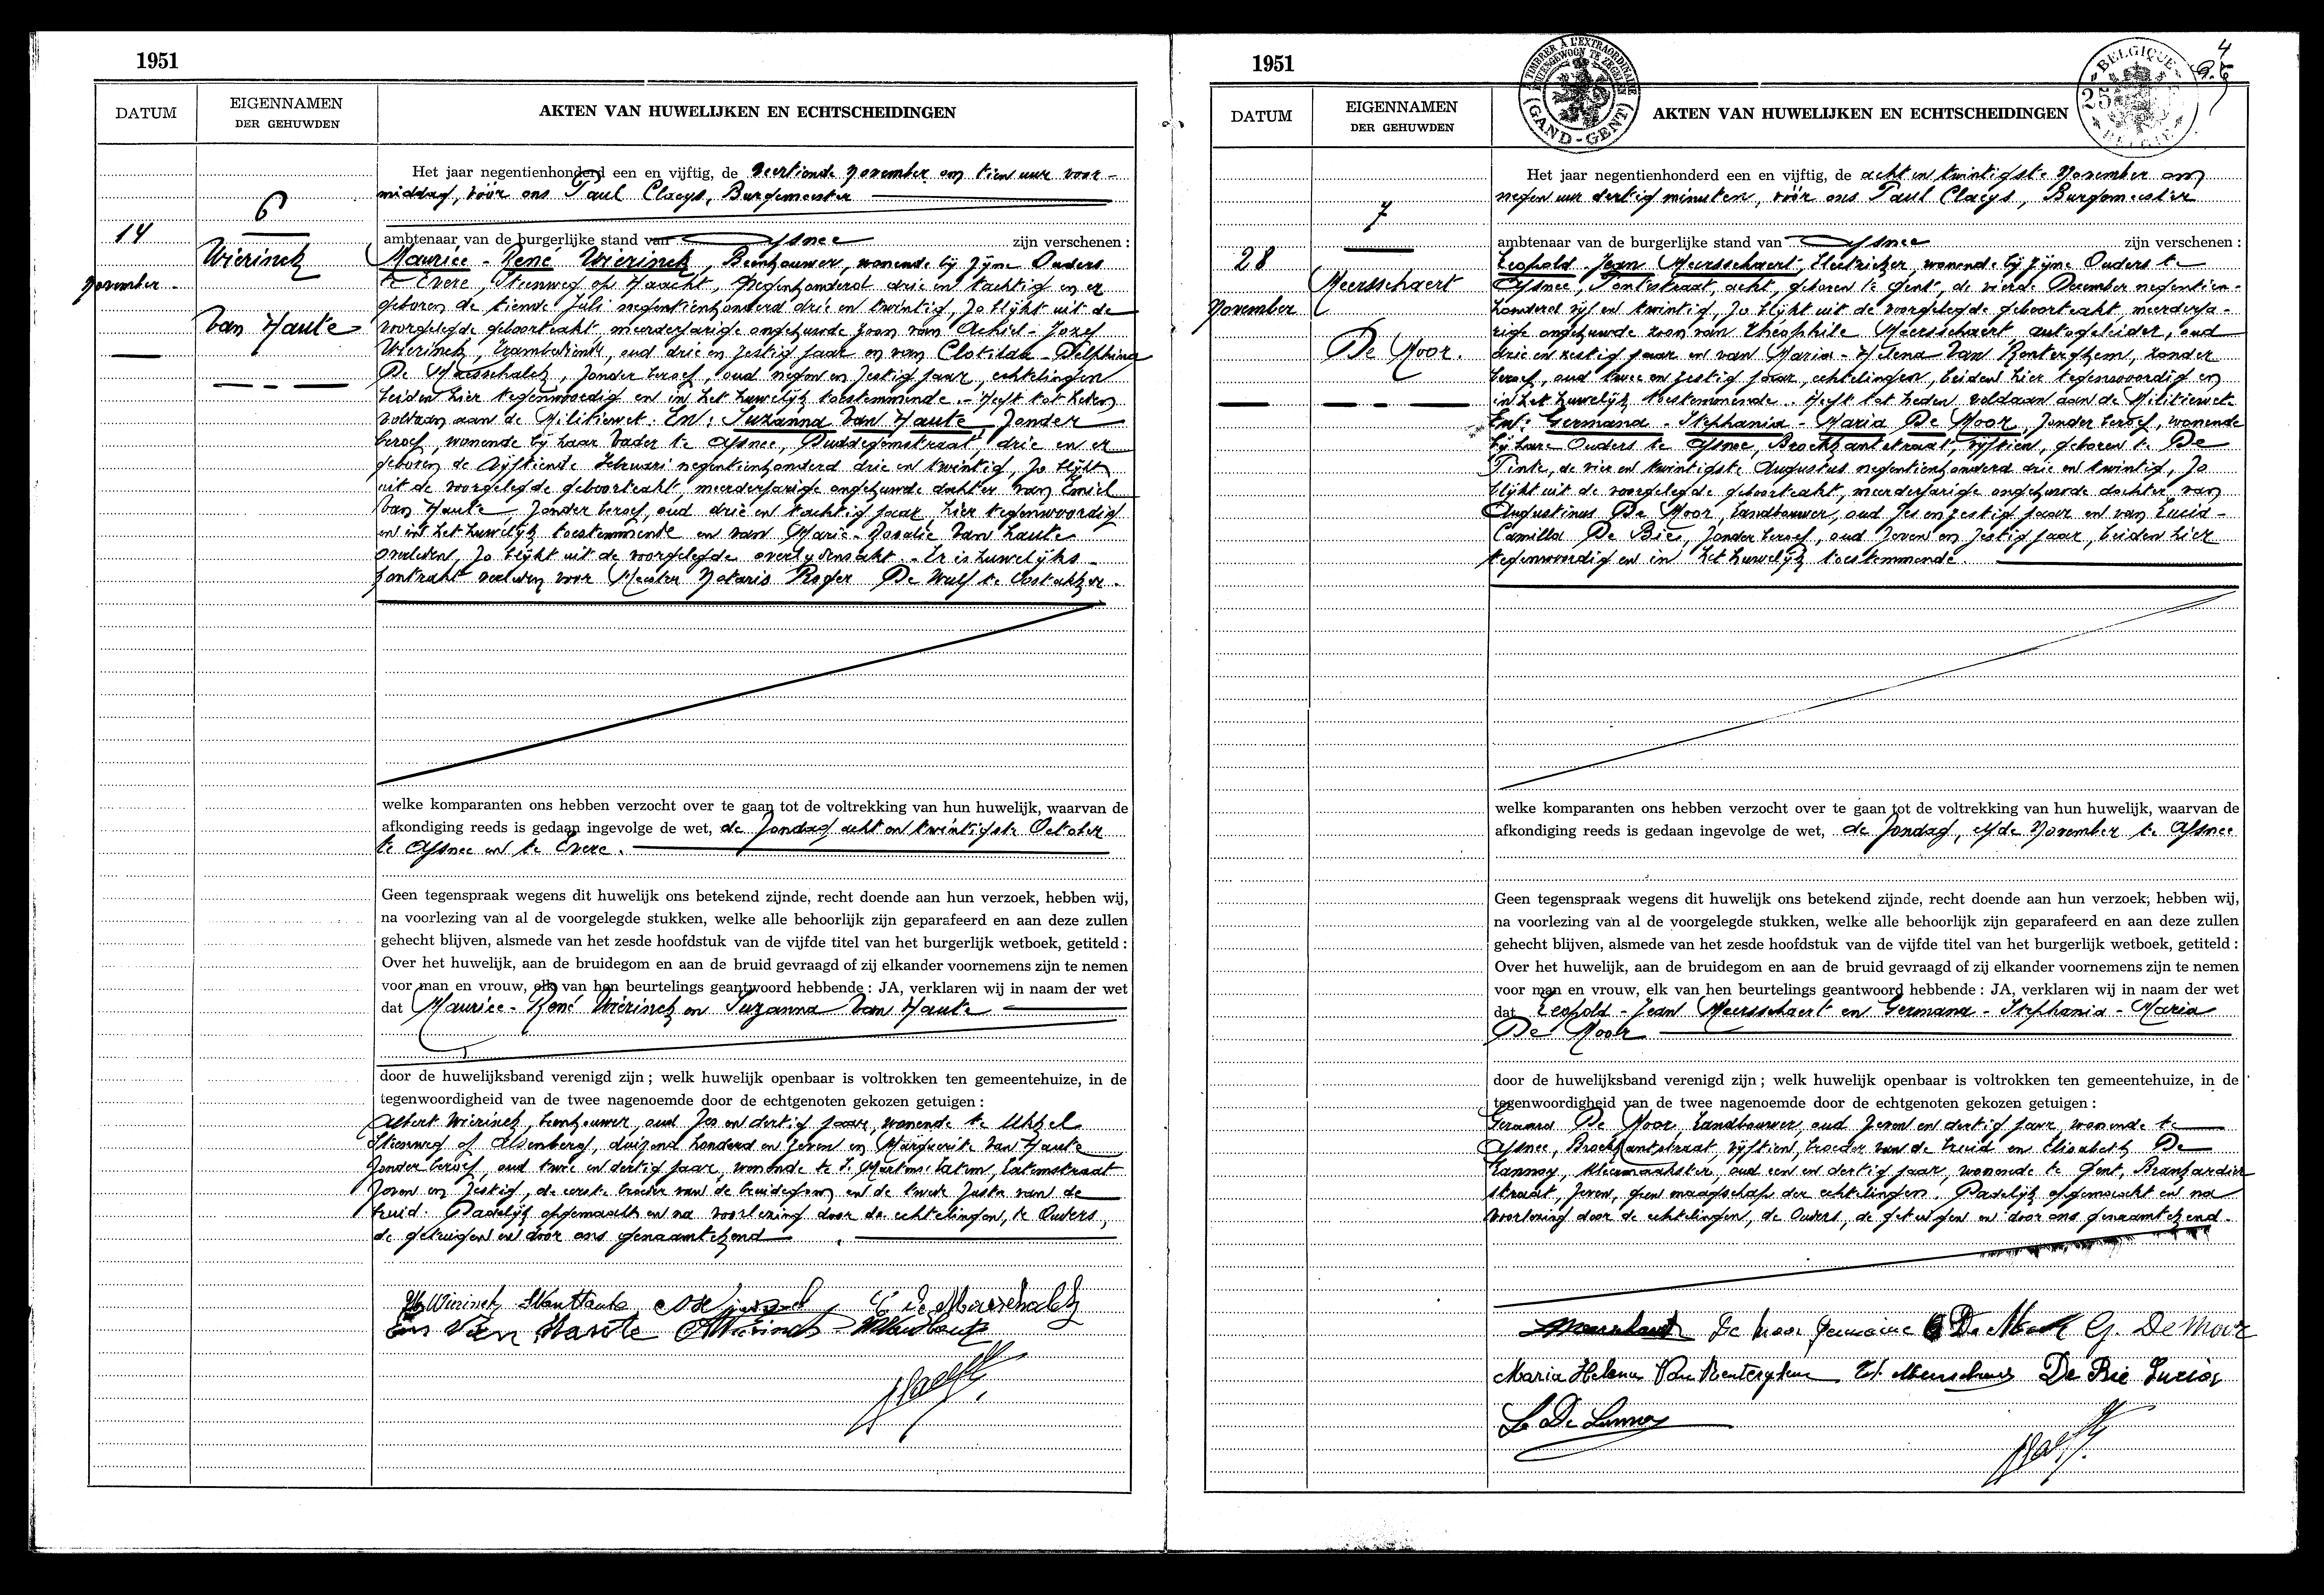 1951
DATUM
EIGENNAMEN
DER GEHUWDEN
AKTEN VAN HUWELIJKEN EN ECHTSCHEIDINGEN
6
14
november
Wierinck
Van Haute
Het jaar negentienhonderd een en vijftig, de veertiende november om tien uur voor-
middag, vóór ons Paul Claeys, Burgemeester
ambtenaar van de burgerlijke stand van Afsnee zijn verschenen :
Maurice - René Wierinck, Beenhouwer, wonende bij zijne Ouders
te Evere, Steenweg op Haacht, negenhonderd drie en tachtig en er
geboren de tiende Juli negentienhonderd drie en twintig, zo blijkt uit de
voorgelegde geboorteakt, meerderjarige ongehuwde zoon van Achiel - Jozef
Wierinck, trambediende, oud drie en zestig jaar en van Clotilda - Delphina
De Maesschalck, zonder beroep, oud negen en zestig jaar, echtelingen
beiden hier tegenwoordig en in het huwelijk toestemmende. - Heeft tot heden
voldaan aan de Militiewet. En : Suzanna Van Haute, zonder
beroep, wonende bij haar Vader te Afsnee, Duddegemstraat, drie en er
geboren de vijftiende Februari negentienhonderd drie en twintig, zo blijkt
uit de voorgelegde geboorteakt, meerderjarige ongehuwde dochter van Emiel
Van Haute, zonder beroep, oud drie en tachtig jaar, hier tegenwoordig
en in het huwelijk toestemmende en van Marie - Rosalie Van Haute
overleden, zo blijkt uit de voorgelegde overlijdensakt. - Er is huwelijks-
kontrakt verleden voor Meester Notaris Roger De Wulf te Oostakker.
welke komparanten ons hebben verzocht over te gaan tot de voltrekking van hun huwelijk, waarvan de
afkondiging reeds is gedaan ingevolge de wet, de Zondag acht en twintigste October
te Afsnee en te Evere.
Geen tegenspraak wegens dit huwelijk ons betekend zijnde, recht doende aan hun verzoek, hebben wij,
na voorlezing van al de voorgelegde stukken, welke alle behoorlijk zijn geparafeerd en aan deze zullen
gehecht blijven, alsmede van het zesde hoofdstuk van de vijfde titel van het burgerlijk wetboek, getiteld :
Over het huwelijk, aan de bruidegom en aan de bruid gevraagd of zij elkander voornemens zijn te nemen
voor man en vrouw, elk van hen beurtelings geantwoord hebbende : JA, verklaren wij in naam der wet
dat Maurice - René Wierinck en Suzanna Van Haute
door de huwelijksband verenigd zijn ; welk huwelijk openbaar is voltrokken ten gemeentehuize, in de
tegenwoordigheid van de twee nagenoemde door de echtgenoten gekozen getuigen :
Albert Wierinck, beenhouwer, oud zes en dertig jaar, wonende te Ukkel
Steenweg op Alsemberg, duizend honderd en zeven en Marguerite Van Haute
zonder beroep, oud twee en dertig jaar, wonende te S. Martens Latem, Latemstraat
zeven en zestig, de eerste broeder van de bruidegom en de tweede zuster van de
bruid. Dadelijk opgemaakt en na voorlezing door de echtelingen, de Ouders,
de getuigen en door ons genaamtekend
M Wierinck S Van Haute C De Maesschalck
Em Van Haute A Wierinck M Van Haute
1951
TIMBRE À L'EXTRAORDINAIRE
BUITENGEWOON TE ZEGELEN
(GAND-GENT)
BELGIQUE
25
BELGIË
4
DATUM
EIGENNAMEN
DER GEHUWDEN
AKTEN VAN HUWELIJKEN EN ECHTSCHEIDINGEN
7
28
november
Meersschaert
De Moor.
Het jaar negentienhonderd een en vijftig, de acht en twintigste November om
negen uur dertig minuten, vóór ons Paul Claeys, Burgemeester
ambtenaar van de burgerlijke stand van Afsnee zijn verschenen :
Leopold - Jean Meersschaert, Electrieker, wonende bij zijne Ouders te
Afsnee, Pontestraat, acht, geboren te Gent, de vierde December negentien-
honderd vijf en twintig, zo blijkt uit de voorgelegde geboorteakt, meerderja-
rige ongehuwde zoon van Theophile Meersschaert, autogeleider, oud
drie en zestig jaar en van Maria - Helena Van Renterghem, zonder
beroep, oud twee en zestig jaar, echtelingen, beiden hier tegenwoordig en
in het huwelijk toestemmende. Heeft tot heden voldaan aan de Militiewet.
En : Germana - Stephania - Maria De Moor, zonder beroep, wonende
bij hare Ouders te Afsnee, Broekkantstraat, vijftien, geboren te De
Pinte, de vier en twintigste Augustus negentienhonderd drie en twintig, zo
blijkt uit de voorgelegde geboorteakt, meerderjarige ongehuwde dochter van
Augustinus De Moor, Landbouwer, oud zes en zestig jaar en van Lucia -
Camilla De Bie, zonder beroep, oud zeven en zestig jaar, beiden hier
tegenwoordig en in het huwelijk toestemmende.
welke komparanten ons hebben verzocht over te gaan tot de voltrekking van hun huwelijk, waarvan de
afkondiging reeds is gedaan ingevolge de wet, de Zondag, elfde November te Afsnee
Geen tegenspraak wegens dit huwelijk ons betekend zijnde, recht doende aan hun verzoek; hebben wij,
na voorlezing van al de voorgelegde stukken, welke alle behoorlijk zijn geparafeerd en aan deze zullen
gehecht blijven, alsmede van het zesde hoofdstuk van de vijfde titel van het burgerlijk wetboek, getiteld :
Over het huwelijk, aan de bruidegom en aan de bruid gevraagd of zij elkander voornemens zijn te nemen
voor man en vrouw, elk van hen beurtelings geantwoord hebbende : JA, verklaren wij in naam der wet
dat Leopold - Jean Meersschaert en Germana - Stephania - Maria
De Moor
door de huwelijksband verenigd zijn ; welk huwelijk openbaar is voltrokken ten gemeentehuize, in de
tegenwoordigheid van de twee nagenoemde door de echtgenoten gekozen getuigen :
Gerard De Moor, Landbouwer, oud zeven en dertig jaar, wonende te
Afsnee, Broekkantstraat, vijftien, broeder van de bruid en Elisabeth De
Lannoy, kleermaakster, oud een en dertig jaar, wonende te Gent,
straat, zeven, geen maagschap der echtelingen. Dadelijk opgemaakt en na
voorlezing door de echtelingen, de Ouders, de getuigen en door ons genaamtekend.
Meersschaert De Moor Germaine De Moor G. De Moor
Maria Helena Van Renterghem Th. Meersschaert De Bie Lucia
De Lannoy